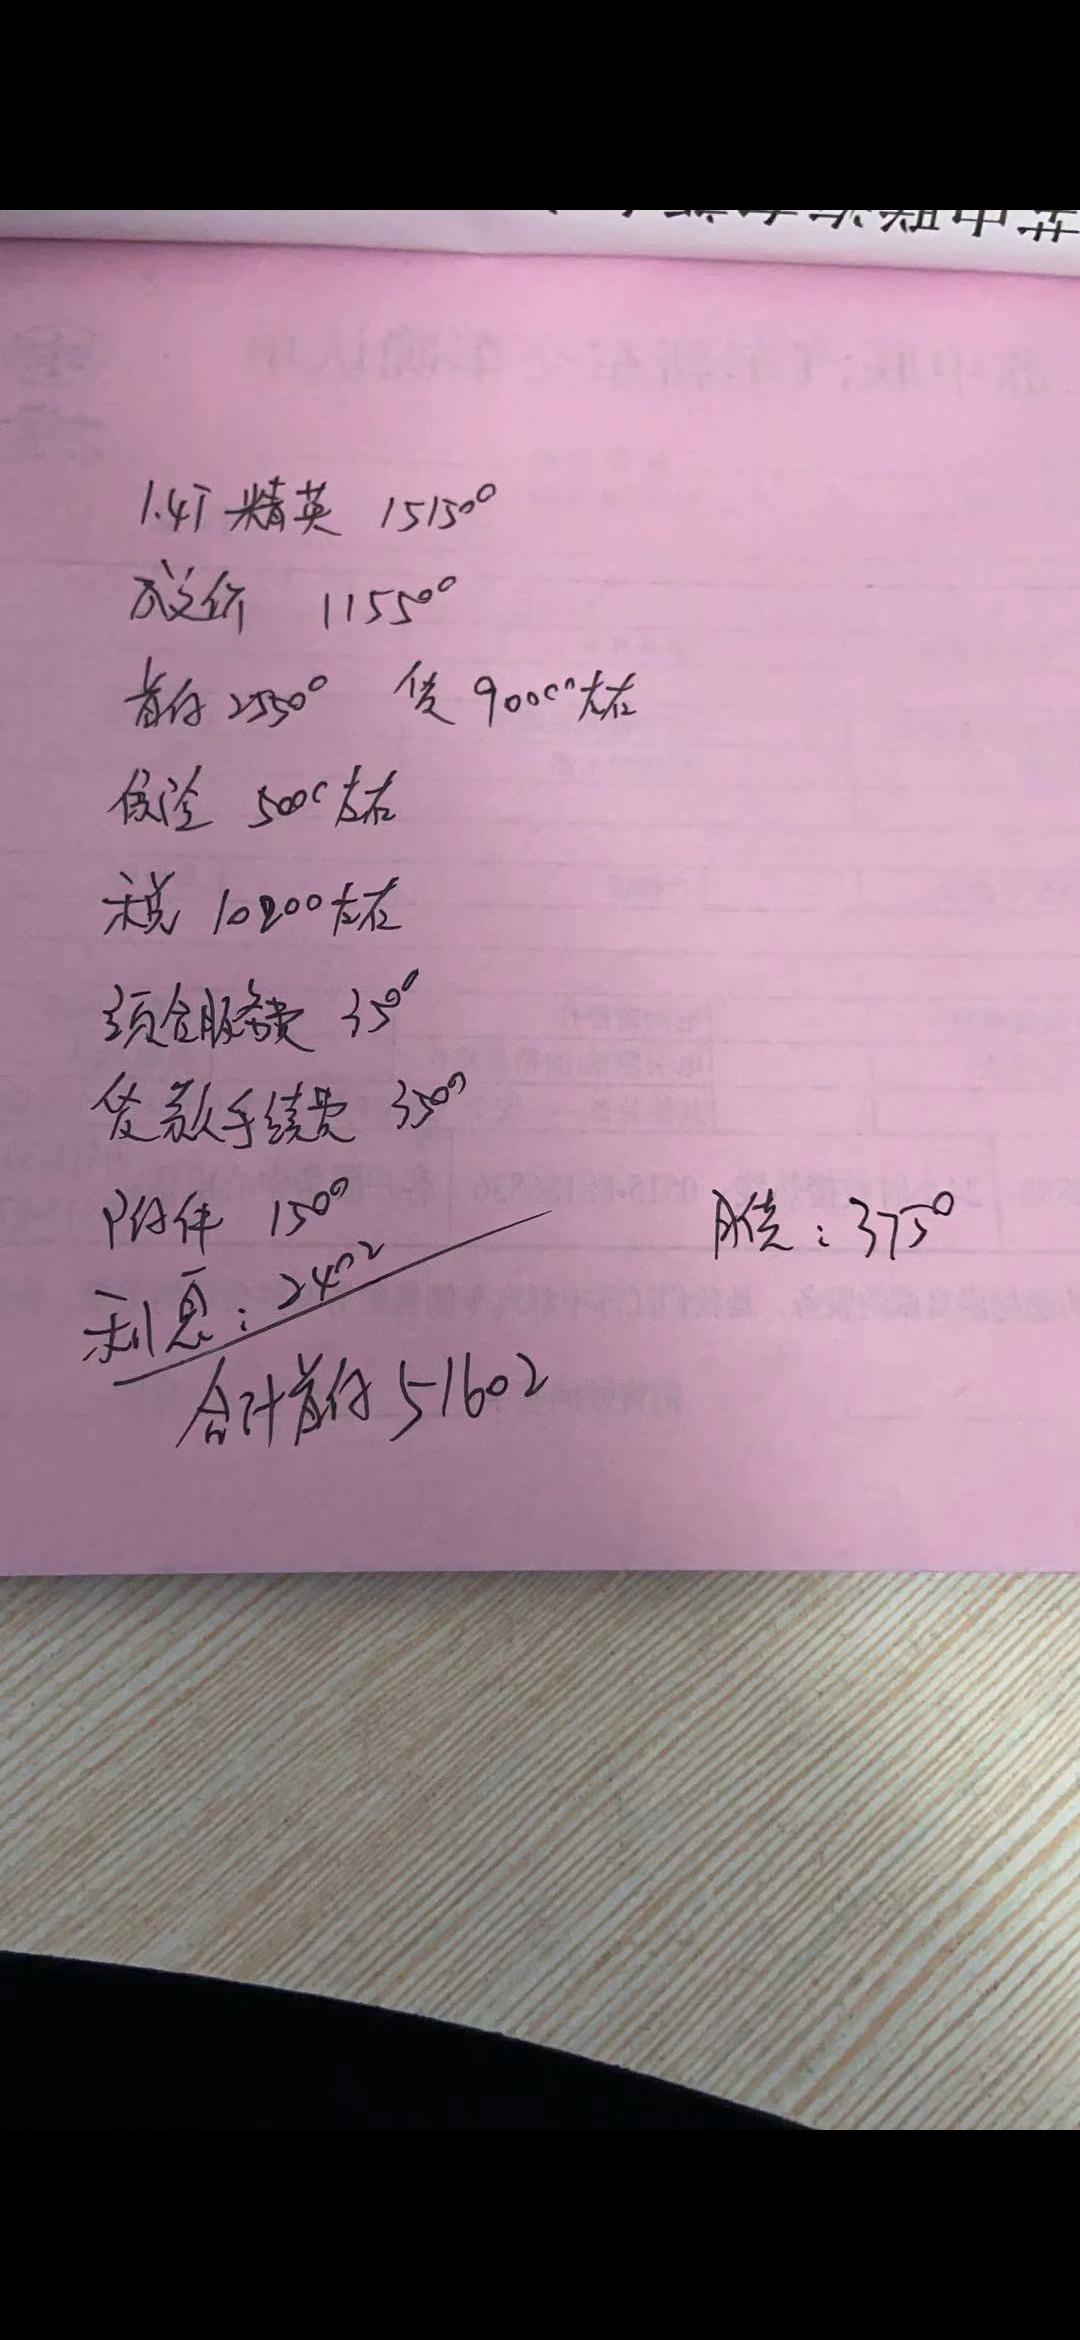 1.4T 精英 151500
成交价 115500
首付 25500 贷 90000左右
保险 5000左右
税 10200左右
综合服务费 3500
贷款手续费 3500
附件 1500
月供：3750
利息：2402
合计首付 51602